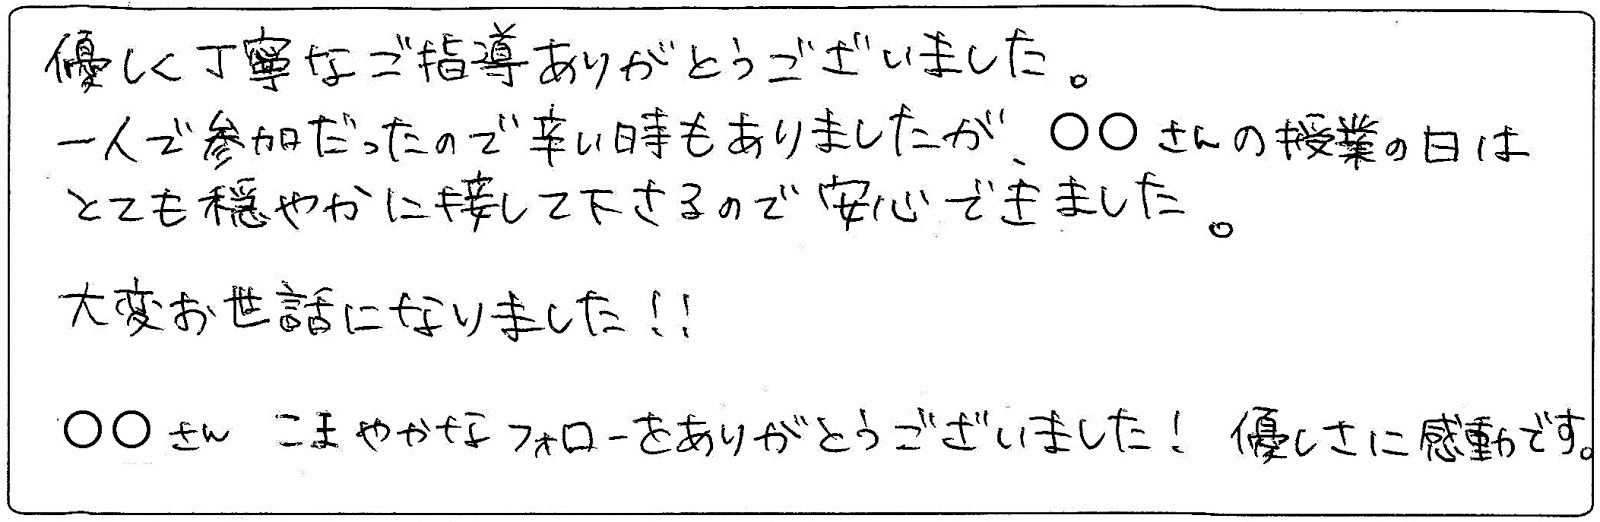 優しく丁寧なご指導ありがとうございました。
一人で参加だったので辛い時もありましたが、〇〇さんの授業の日は
とても穏やかに接して下さるので安心できました。
大変お世話になりました!!
〇〇さん こまやかなフォローをありがとうございました! 優しさに感動です。